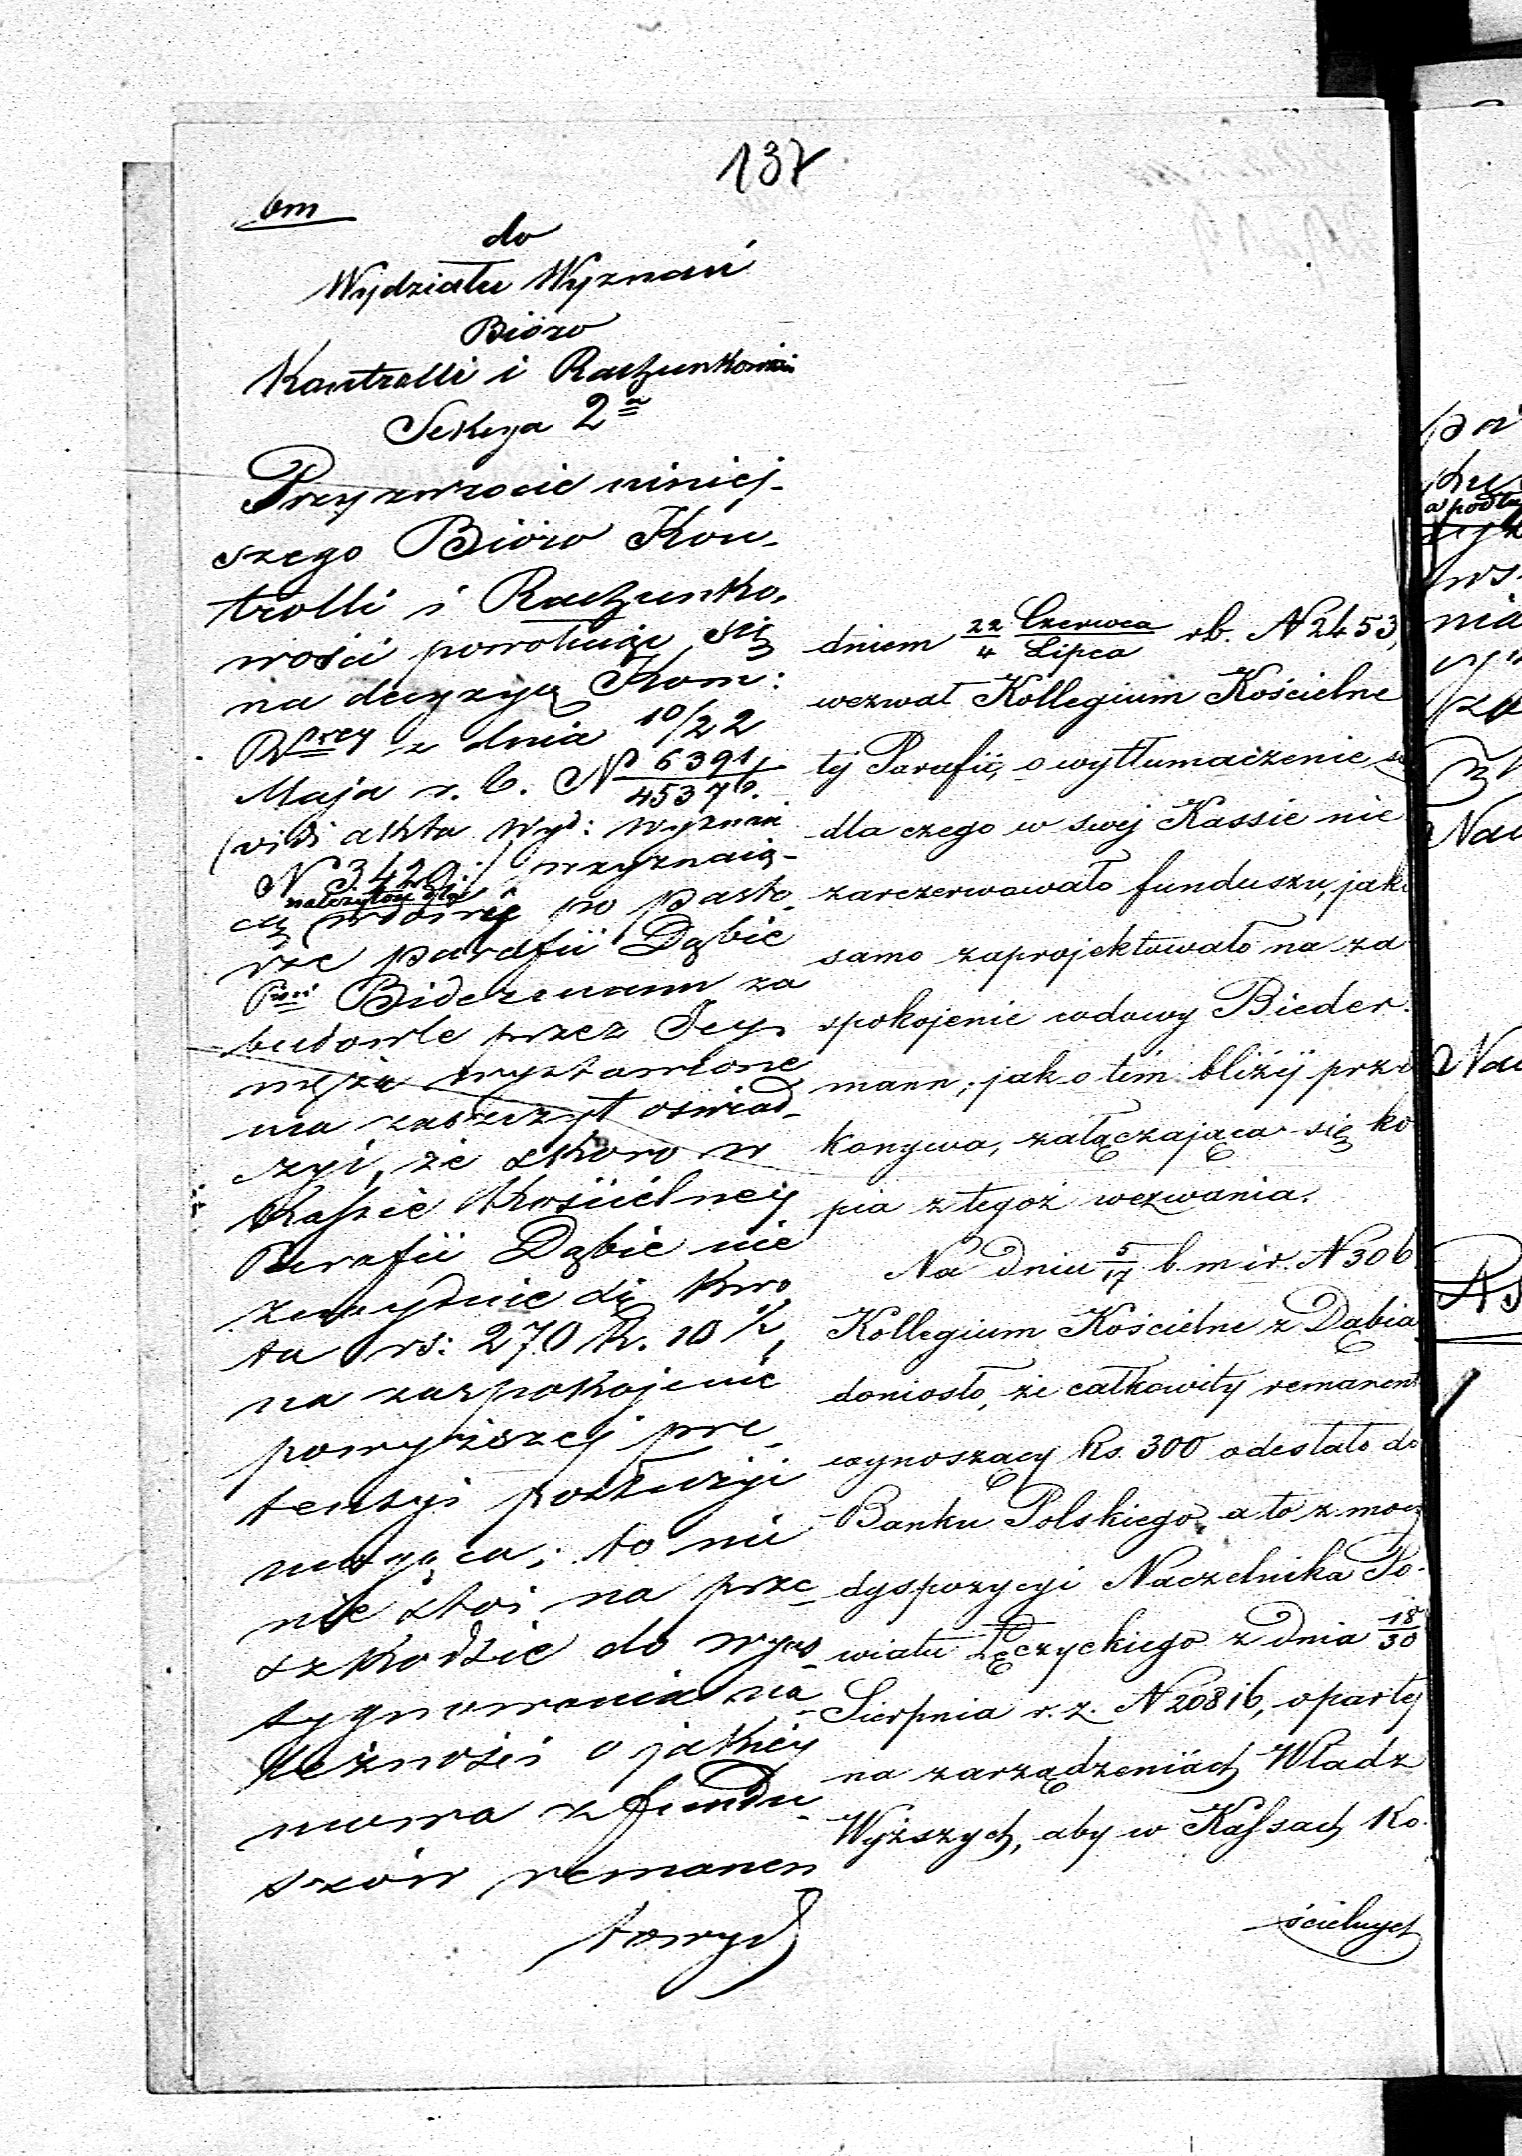 137
bm
do
Wydziału Wyznań
Bióro
Kontrolli i Rachunkowości
Sekcya 2ª
Przy zwrocie niniej-
szego Bióro Kon-
trolli i Rachunko-
wości powołując się
na decyzyą Kom:
Rprzy z dnia 10/22
Maja r. b. N 6391/4537b.
(vidi akta Wyd: Wyznań
N 3420:/ przyznają-
należytość dla
cą wdowie po Pasto-
rze parafii Dąbie
Pani Bidermann za
budowle przez Jey
męża wystawione
ma zaszczyt oświad-
czyć, że skoro w
Kassie Kościelney
Parafii Dąbie nie
znayduie się kwo
ta rs: 270 k. 10 ½,
na zaspokojenie
powyższej pre-
tensyi posłużyć
mogąca; to nic
nie stoi na prze-
szkodzie do wyas-
sygnowania na-
leżności o jakiéj
mowa z fundu-
szów remanen
towych
dniem 22 Czerwca/4 Lipca rb. N 2453,
wezwał Kollegium Kościelne
tej Parafii, o wytłumaczenie się
dla czego w swej Kassie nie
zarezerwowało funduszu, jaki
samo zaprojektowało na za
spokojenie wdowy Bieder-
mann; jak o tém bliżéj prze
konywa, załączająca się ko
pia z tegoż wezwania.
Na dniu 5/17 b. m i r. N 306
Kollegium Kościelne z Dąbia
doniosło, że całkowity remanent
wynoszący Rs. 300 odesłało do
Banku Polskiego, a to z mocy
dyspozycyi Naczelnika Po-
wiatu Łęczyckiego z dnia 18/30
Sierpnia r. z. N 20816, opartej
na zarządzeniach Władz
Wyższych, aby w Kassach Ko-
ścielnych